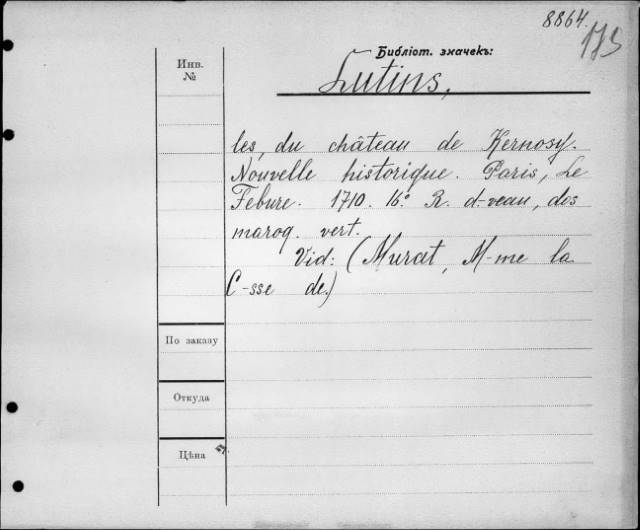 8864.
175
Библіот. значекъ:
Инв.
№
Lutins,
les, du château de Kernosy.
Nouvelle historique. Paris, Le
Febure. 1710. 16° R. d-veau, des
maroq. vert.
Vid: (Murat, M-me la
C-sse de.)
По заказу
Откуда
Цѣна